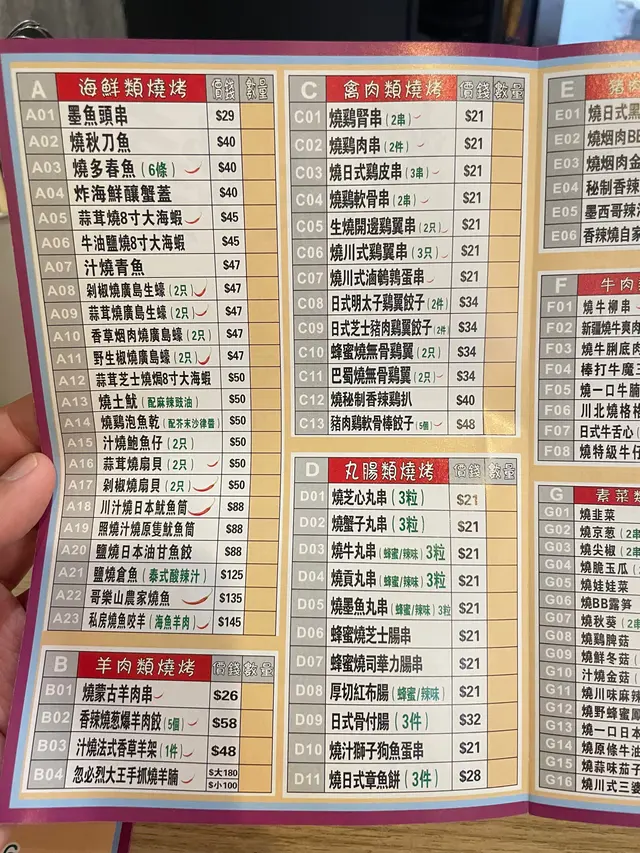 A 海鮮類燒烤 價錢 數量
A01 墨魚頭串 $29
A02 燒秋刀魚 $40
A03 燒多春魚(6條) $40
A04 炸海鮮釀蟹蓋 $40
A05 蒜茸燒8寸大海蝦 $45
A06 牛油鹽燒8寸大海蝦 $45
A07 汁燒青魚 $47
A08 剁椒燒廣島生蠔(2只) $47
A09 蒜茸燒廣島生蠔(2只) $47
A10 香草烟肉燒廣島蠔(2只) $47
A11 野生椒燒廣島蠔(2只) $47
A12 蒜茸芝士燒焗8寸大海蝦 $50
A13 燒土魷(配麻辣豉油) $50
A14 燒鷄泡魚乾(配芥末沙律醬) $50
A15 汁燒鮑魚仔(2只) $50
A16 蒜茸燒扇貝(2只) $50
A17 剁椒燒扇貝(2只) $50
A18 川汁燒日本魷魚筒 $88
A19 照燒汁燒原隻魷魚筒 $88
A20 鹽燒日本油甘魚餃 $88
A21 鹽燒倉魚(泰式酸辣汁) $125
A22 哥樂山農家燒魚 $135
A23 私房燒魚咬羊(海魚羊肉) $145
B 羊肉類燒烤 價錢 數量
B01 燒蒙古羊肉串 $26
B02 香辣燒葱爆羊肉餃(5個) $58
B03 汁燒法式香草羊架(1件) $48
B04 忽必烈大王手抓燒羊腩 $大180 $小100
C 禽肉類燒烤 價錢 數量
C01 燒鷄腎串(2串) $21
C02 燒鷄肉串(2件) $21
C03 燒日式鷄皮串(3串) $21
C04 燒鷄軟骨串(2串) $21
C05 生燒開邊鷄翼串(2只) $21
C06 燒川式鷄翼串(3只) $21
C07 燒川式滷鵪鶉蛋串 $21
C08 日式明太子鷄翼餃子(2件) $34
C09 日式芝士豬肉鷄翼餃子(2件) $34
C10 蜂蜜燒無骨鷄翼(2只) $34
C11 巴蜀燒無骨鷄翼(2只) $34
C12 燒秘製香辣鷄扒 $40
C13 豬肉鷄軟骨棒餃子(5個) $48
D 丸腸類燒烤 價錢 數量
D01 燒芝心丸串(3粒) $21
D02 燒蟹子丸串(3粒) $21
D03 燒牛丸串(蜂蜜/辣味)3粒 $21
D04 燒貢丸串(蜂蜜/辣味)3粒 $21
D05 燒墨魚丸串(蜂蜜/辣味)3粒 $21
D06 蜂蜜燒芝士腸串 $21
D07 蜂蜜燒司華力腸串 $21
D08 厚切紅布腸(蜂蜜/辣味) $21
D09 日式骨付腸(3件) $32
D10 燒汁獅子狗魚蛋串 $21
D11 燒日式章魚餅(3件) $28
E 豬肉
E01 燒日式黑
E02 燒烟肉BB
E03 燒烟肉金
E04 秘制香辣
E05 墨西哥辣
E06 香辣燒自家
F 牛肉
F01 燒牛柳串
F02 新疆燒牛爽肉
F03 燒牛脷底肉
F04 棒打牛魔王
F05 燒一口牛腩
F06 川北燒格格
F07 日式牛舌心
F08 燒特級牛仔
G 素菜類
G01 燒韭菜
G02 燒京葱(2串
G03 燒尖椒(2串
G04 燒脆玉瓜(2
G05 燒娃娃菜
G06 燒BB露笋
G07 燒秋葵(2串
G08 燒鷄脾菇
G09 燒鮮冬菇(
G10 汁燒金菇(
G11 燒川味麻辣
G12 燒野蜂蜜鳳
G13 燒一口日本
G14 燒原條牛油
G15 燒蒜味茄子
G16 燒川式三婆